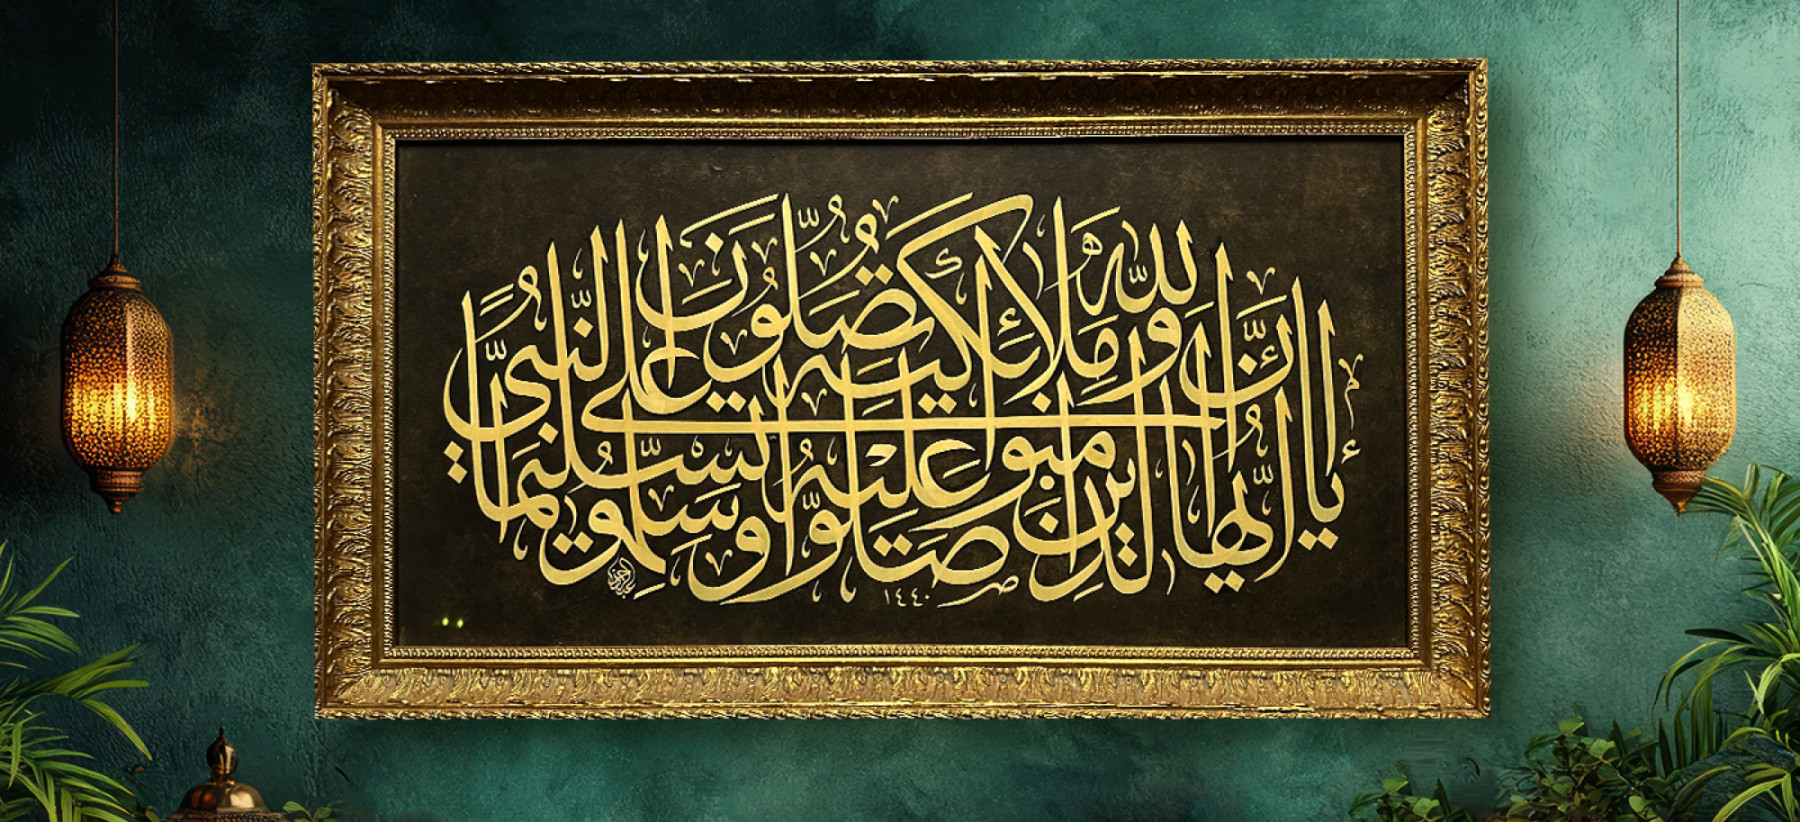 إِنَّ اللهَ وَمَلَائِكَتَهُ يُصَلُّونَ عَلَى النَّبِيِّ
يَا أَيُّهَا الَّذِينَ آمَنُوا صَلُّوا عَلَيْهِ وَسَلِّمُوا تَسْلِيمًا
١٤٤٠